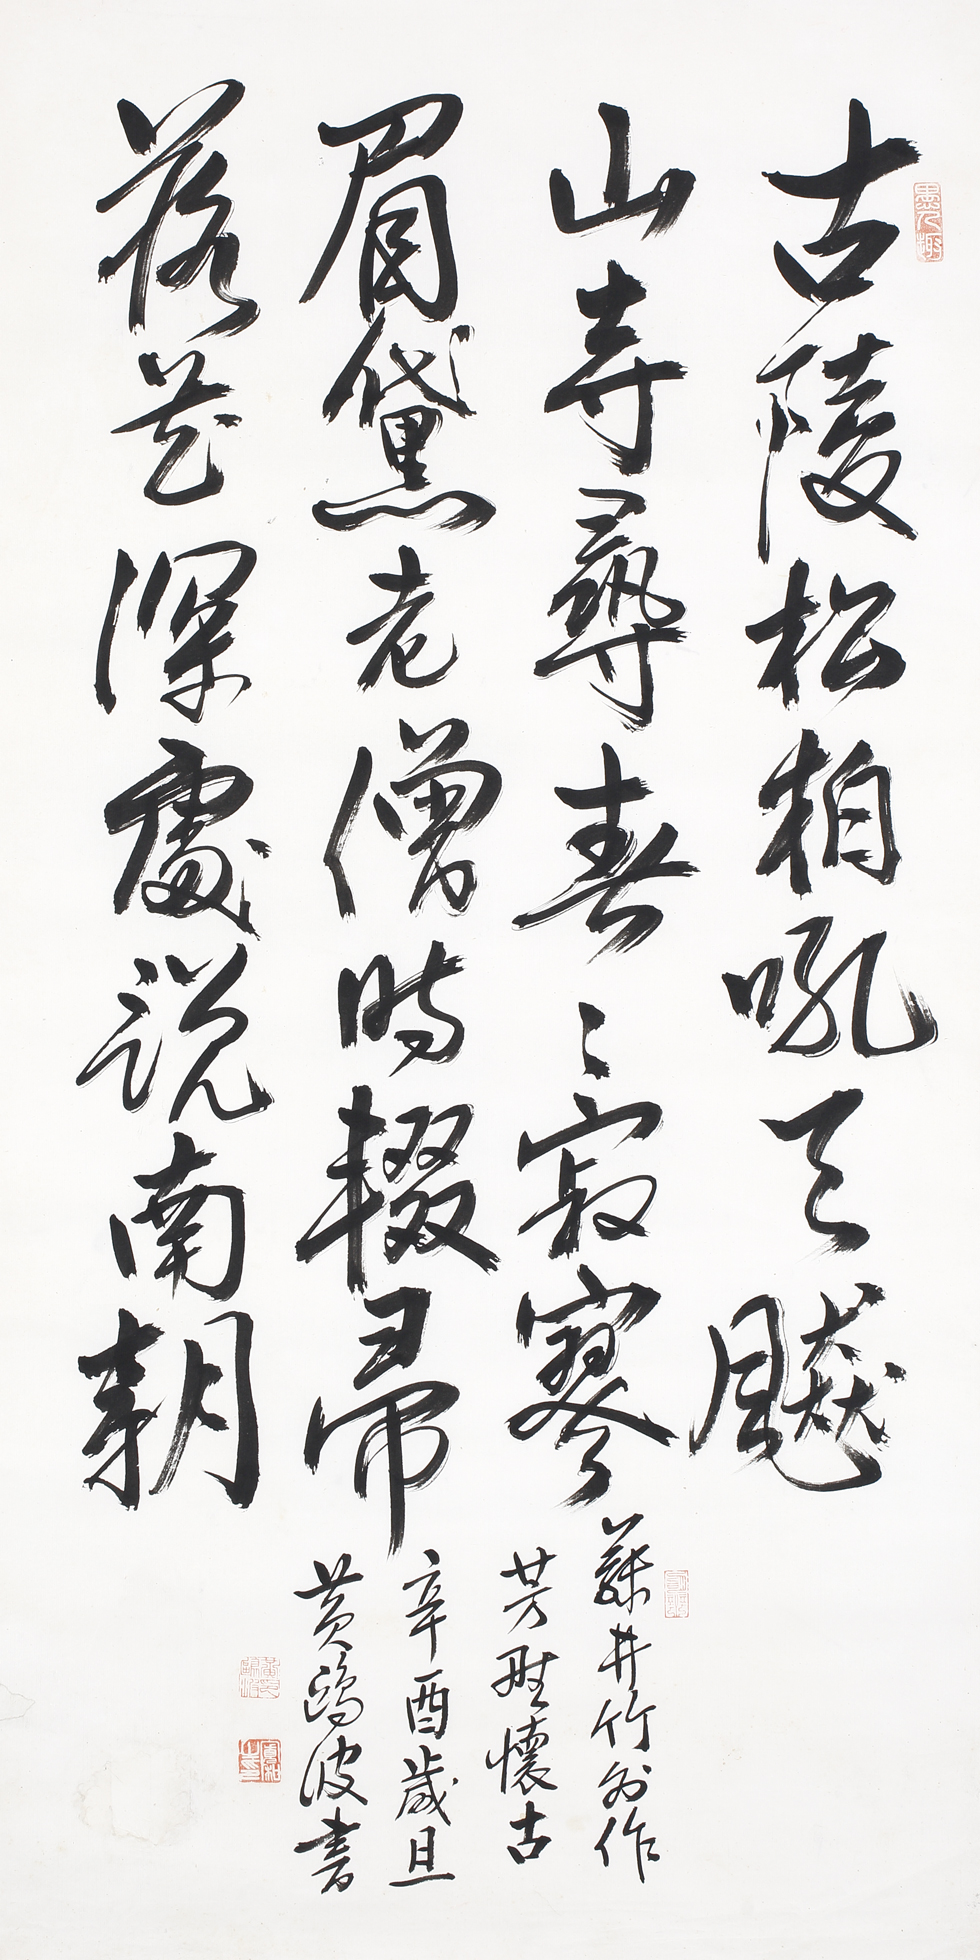 古陵松柏吼天飈
山寺尋春春寂寥
眉黛老僧時輟帚
落花深處說南朝
藤井竹外作
芳野懷古
辛酉歲旦
黃鷗波書